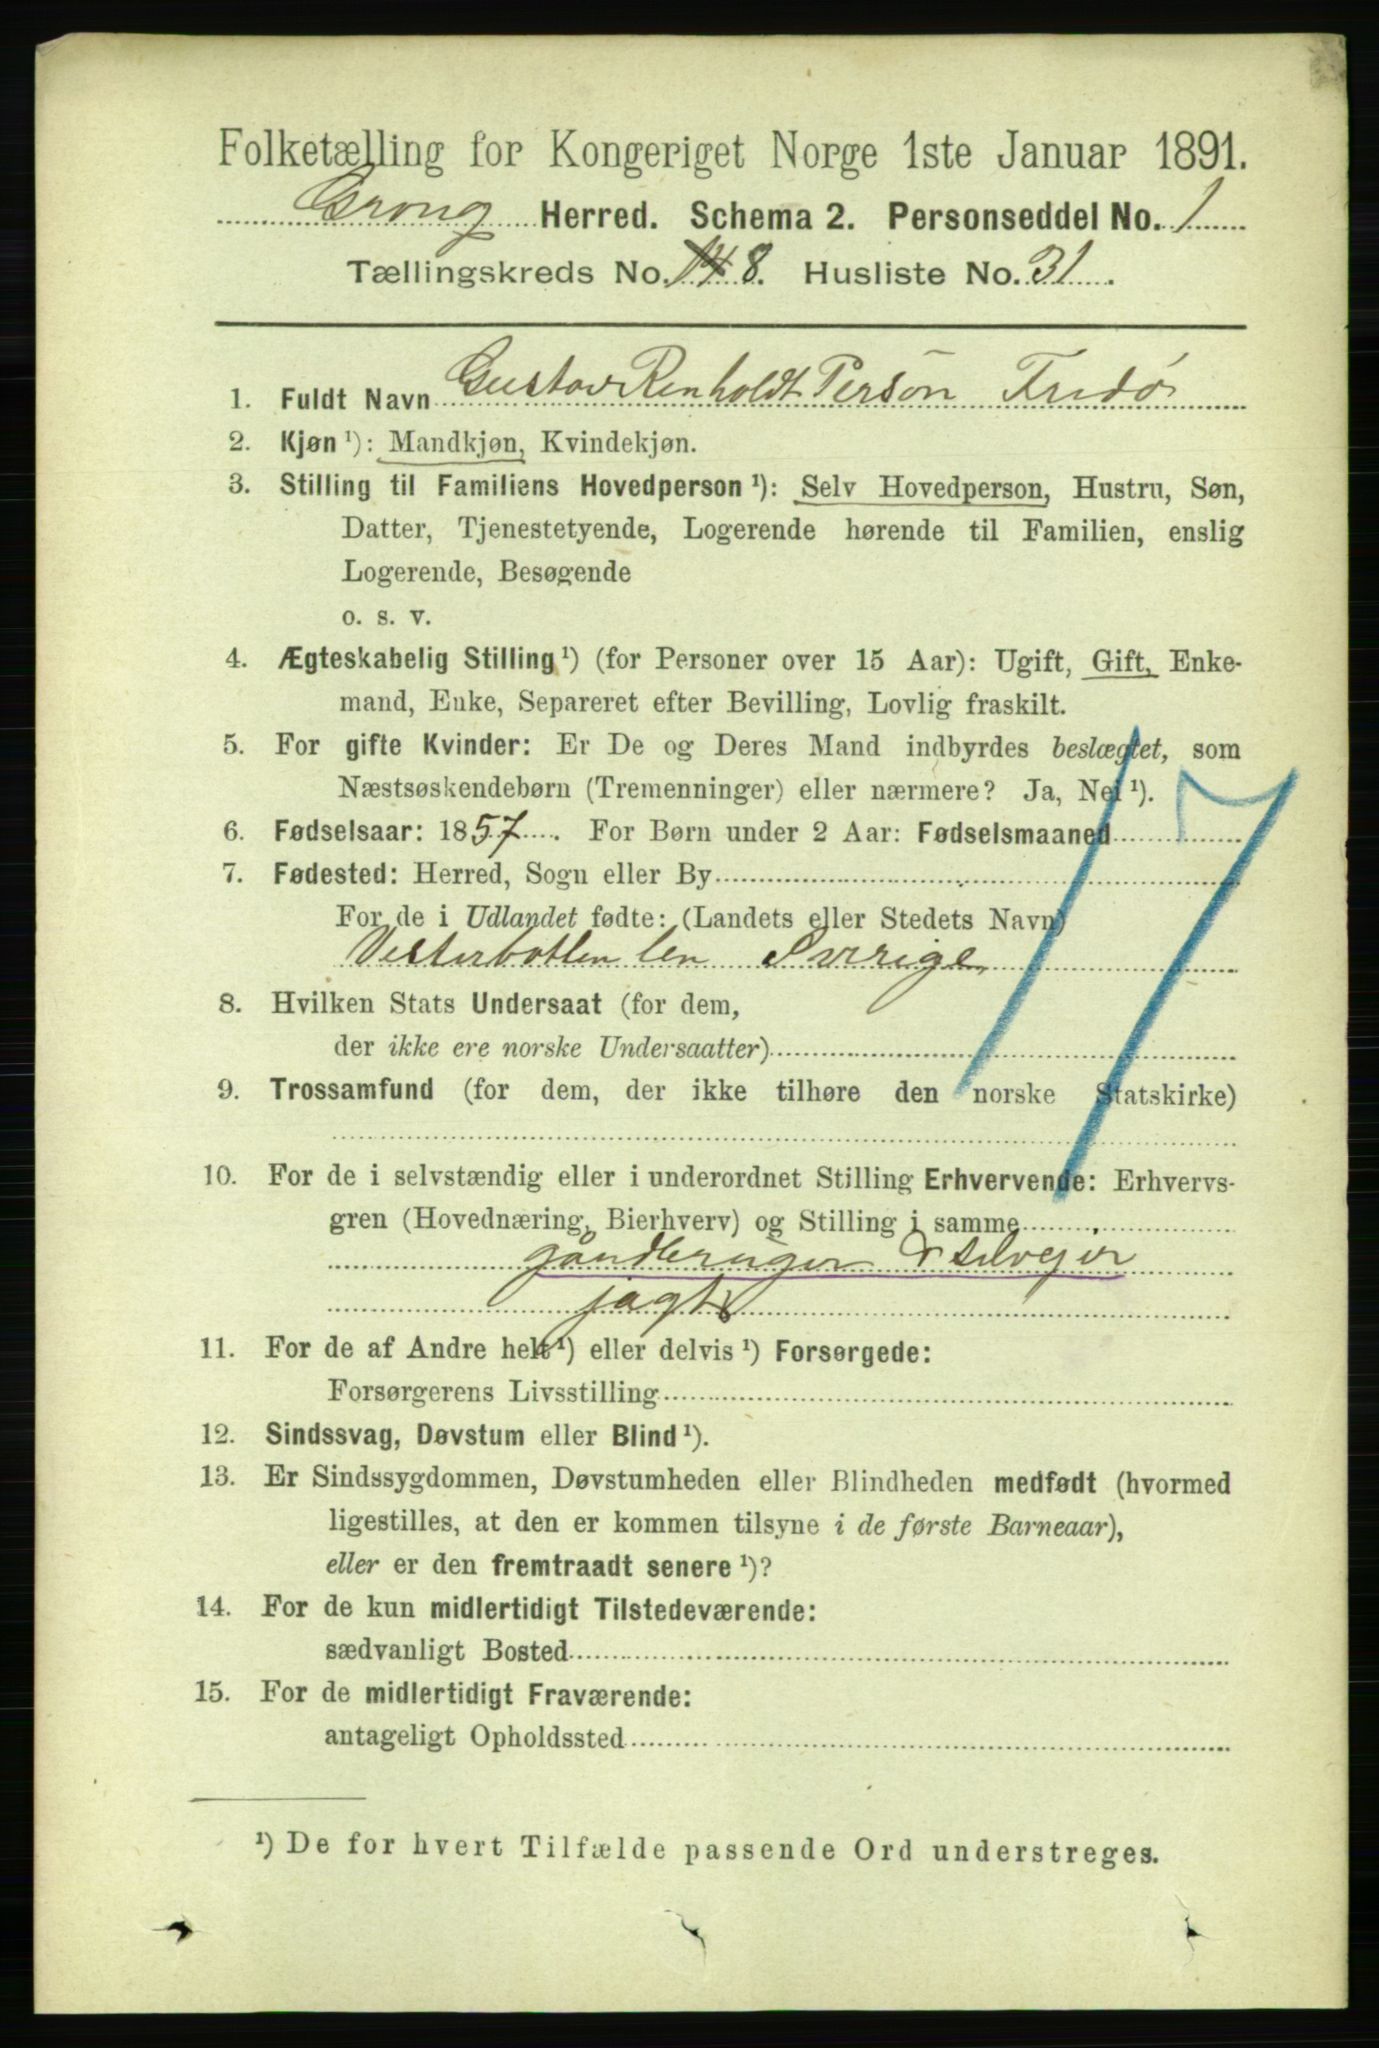 Folketælling for Kongeriget Norge 1ste Januar 1891.
Grong Herred. Schema 2. Personseddel No. 1
Tællingskreds No. 14 8. Husliste No. 31.
1. Fuldt Navn Gustav Renholdt Person Fredø
2. Kjøn ¹): Mandkjøn, Kvindekjøn.
3. Stilling til Familiens Hovedperson ¹): Selv Hovedperson, Hustru, Søn,
Datter, Tjenestetyende, Logerende hørende til Familien, enslig
Logerende, Besøgende
o. s. v.
4. Ægteskabelig Stilling ¹) (for Personer over 15 Aar): Ugift, Gift, Enke-
mand, Enke, Separeret efter Bevilling, Lovlig fraskilt.
5. For gifte Kvinder: Er De og Deres Mand indbyrdes beslægtet, som
Næstsøskendebørn (Tremenninger) eller nærmere? Ja, Nei ¹).
6. Fødselsaar: 1857. For Børn under 2 Aar: Fødselsmaaned
7. Fødested: Herred, Sogn eller By
For de i Udlandet fødte: (Landets eller Stedets Navn)
Vesterbotten len Sverige
8. Hvilken Stats Undersaat (for dem,
der ikke ere norske Undersaatter)
9. Trossamfund (for dem, der ikke tilhøre den norske Statskirke)
10. For de i selvstændig eller i underordnet Stilling Erhvervende: Erhvervs-
gren (Hovednæring, Bierhverv) og Stilling i samme
gåndbruger & selvejer
jagt
11. For de af Andre helt ¹) eller delvis ¹) Forsørgede:
Forsørgerens Livsstilling
12. Sindssvag, Døvstum eller Blind ¹).
13. Er Sindssygdommen, Døvstumheden eller Blindheden medfødt (hvormed
ligestilles, at den er kommen tilsyne i de første Barneaar),
eller er den fremtraadt senere ¹)?
14. For de kun midlertidigt Tilstedeværende:
sædvanligt Bosted
15. For de midlertidigt Fraværende:
antageligt Opholdssted
17
¹) De for hvert Tilfælde passende Ord understreges.